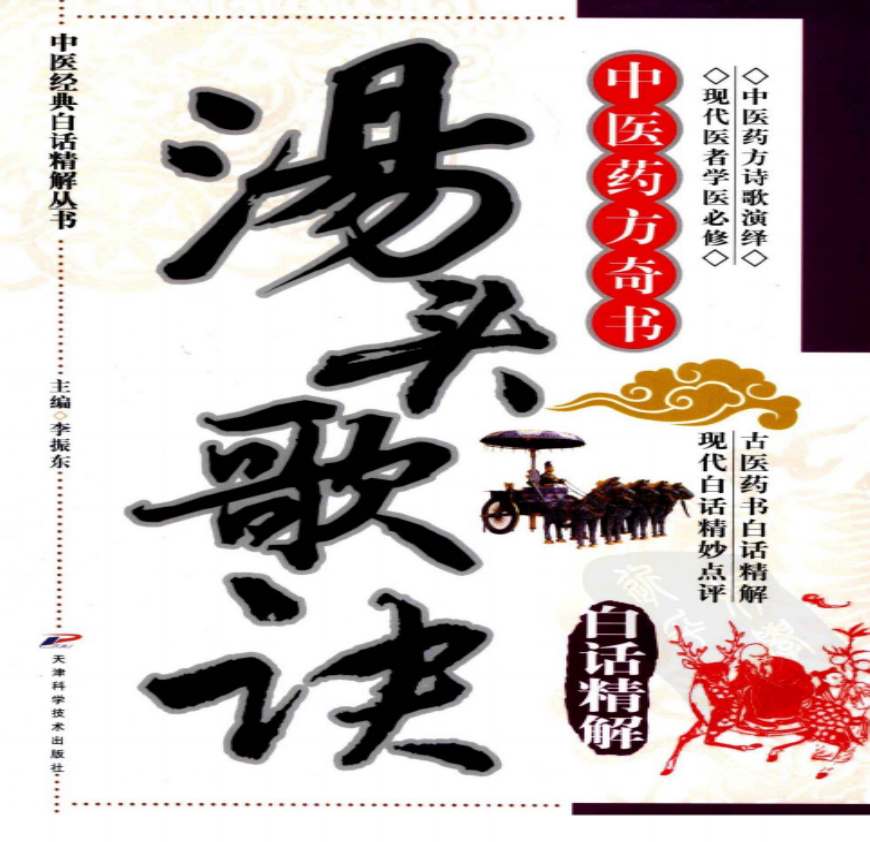 ◇中医药方诗歌演绎◇
◇现代医者学医必修◇
中医药方奇书
湯头歌诀
古医药书白话精解
现代白话精妙点评
白话精解
中医经典白话精解丛书
主编◇李振东
天津科学技术出版社